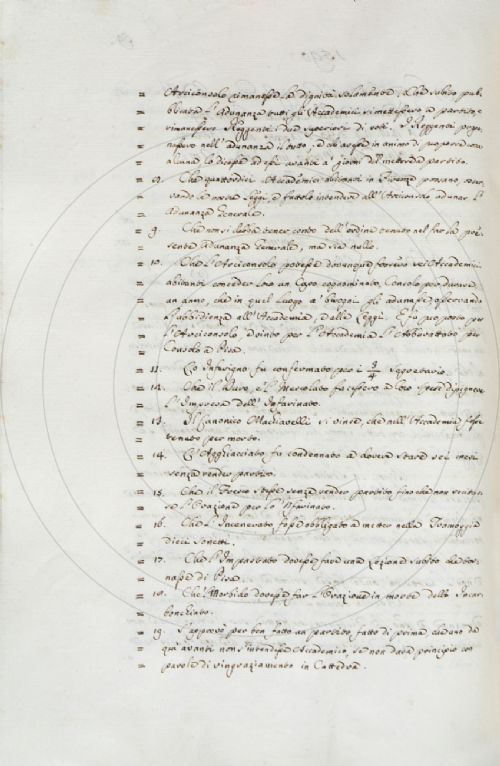 = Arciconsolo rimanesse la dignità solamente, e che subito pub=
= blicata l'Adunanza tutti gli Accademici si mettessero a partito, e
= rimanessero Reggenti i due superiori di voti. I Reggenti propo=
= nessero nell'Adunanza il tutto, e chi avesse in animo di proporre cosa
= alcuna lo dicesse ad essi avanti a' giorni di mettere a partito.
= 8. Che quattordici Accademici abitanti in Firenze possano, osser=
= vando le nostre Leggi, e fattolo intendere all'Arciconsolo adunar l'
= Adunanza Generale.
= 9. Che non si debba tener conto dell'ordine tenuto nel far la pre=
= sente Adunanza Generale, ma sia nullo.
= 10. Che l'Arciconsolo potesse dovunque fossero sei Accademici
= abitanti concedere loro un Capo cognominato Consolo per durare
= un anno, che in quel luogo a' bisogni gli adunasse osservando
= l'ubbidienza all'Accademia, e alle Leggi. E fu proposto per
= l'Arciconsolo, e vinto per l'Accademia l'Abburattato per
= Consolo a Pisa.
= 11. Lo 'nferigno fu confermato per i 3/4 Segretario.
= 12. Che il Duro, e 'l Mescolato facessero a loro spese dipignere
= l'Impresa dell'Infarinato.
= 13. Il Canonico Machiavelli si vinse, che nell'Accademia fosse
= tenuto per morto.
= 14. L'Agghiacciato fu condennato a dovere stare sei mesi
= senza render partito.
= 15. Che il stesse senza render partito fino che non recitas=
= se l'Orazione per lo 'nfarinato.
= 16. Che l'Incenerato fosse obbligato a metter nella Tramoggia
= dieci Sonetti.
= 17. Che l'Impastato dovesse fare una Lezione subito che tor=
= nasse di Pisa.
= 18. Che 'l Morbido dovesse far l'Orazione in morte dello
=
= 19. S'approvò per ben fatto un partito fatto di prima, che uno da
= qui avanti non s'intendesse Accademico, se non dava principio con
= parole di ringraziamento in Cattedra.